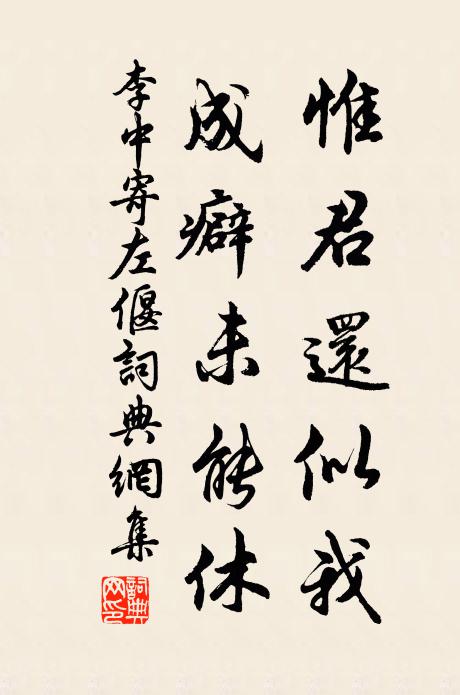 惟君還似我
成癖未能休
李中寄左偃詞典網集
詞典网印